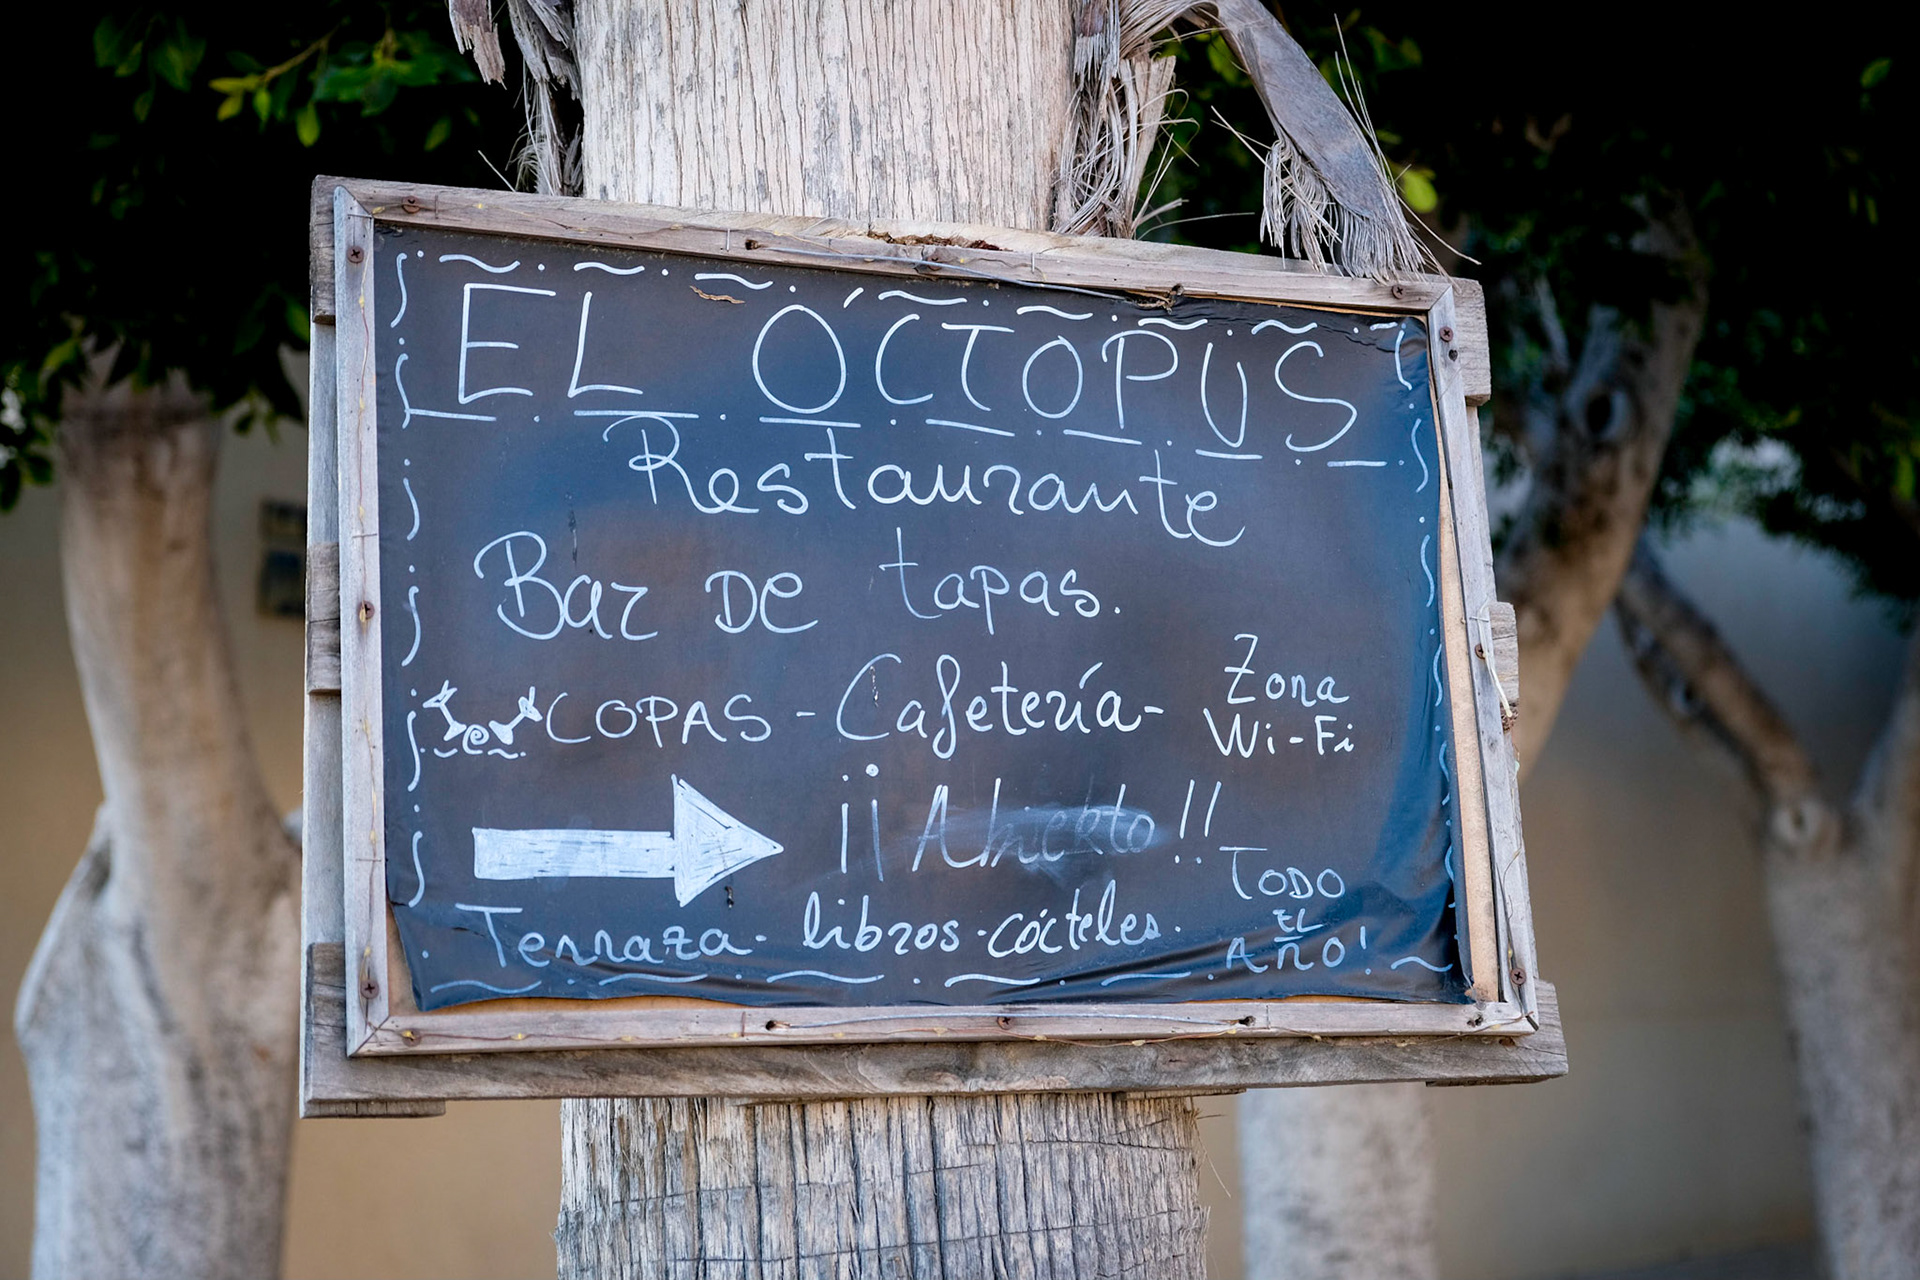 EL ÓCTOPUS
Restaurante
Bar DE tapas.
COPAS - Cafetería -
Zona
Wi-Fi
¡¡Abierto!!
Terraza - libros - cócteles.
TODO
EL
AÑO!